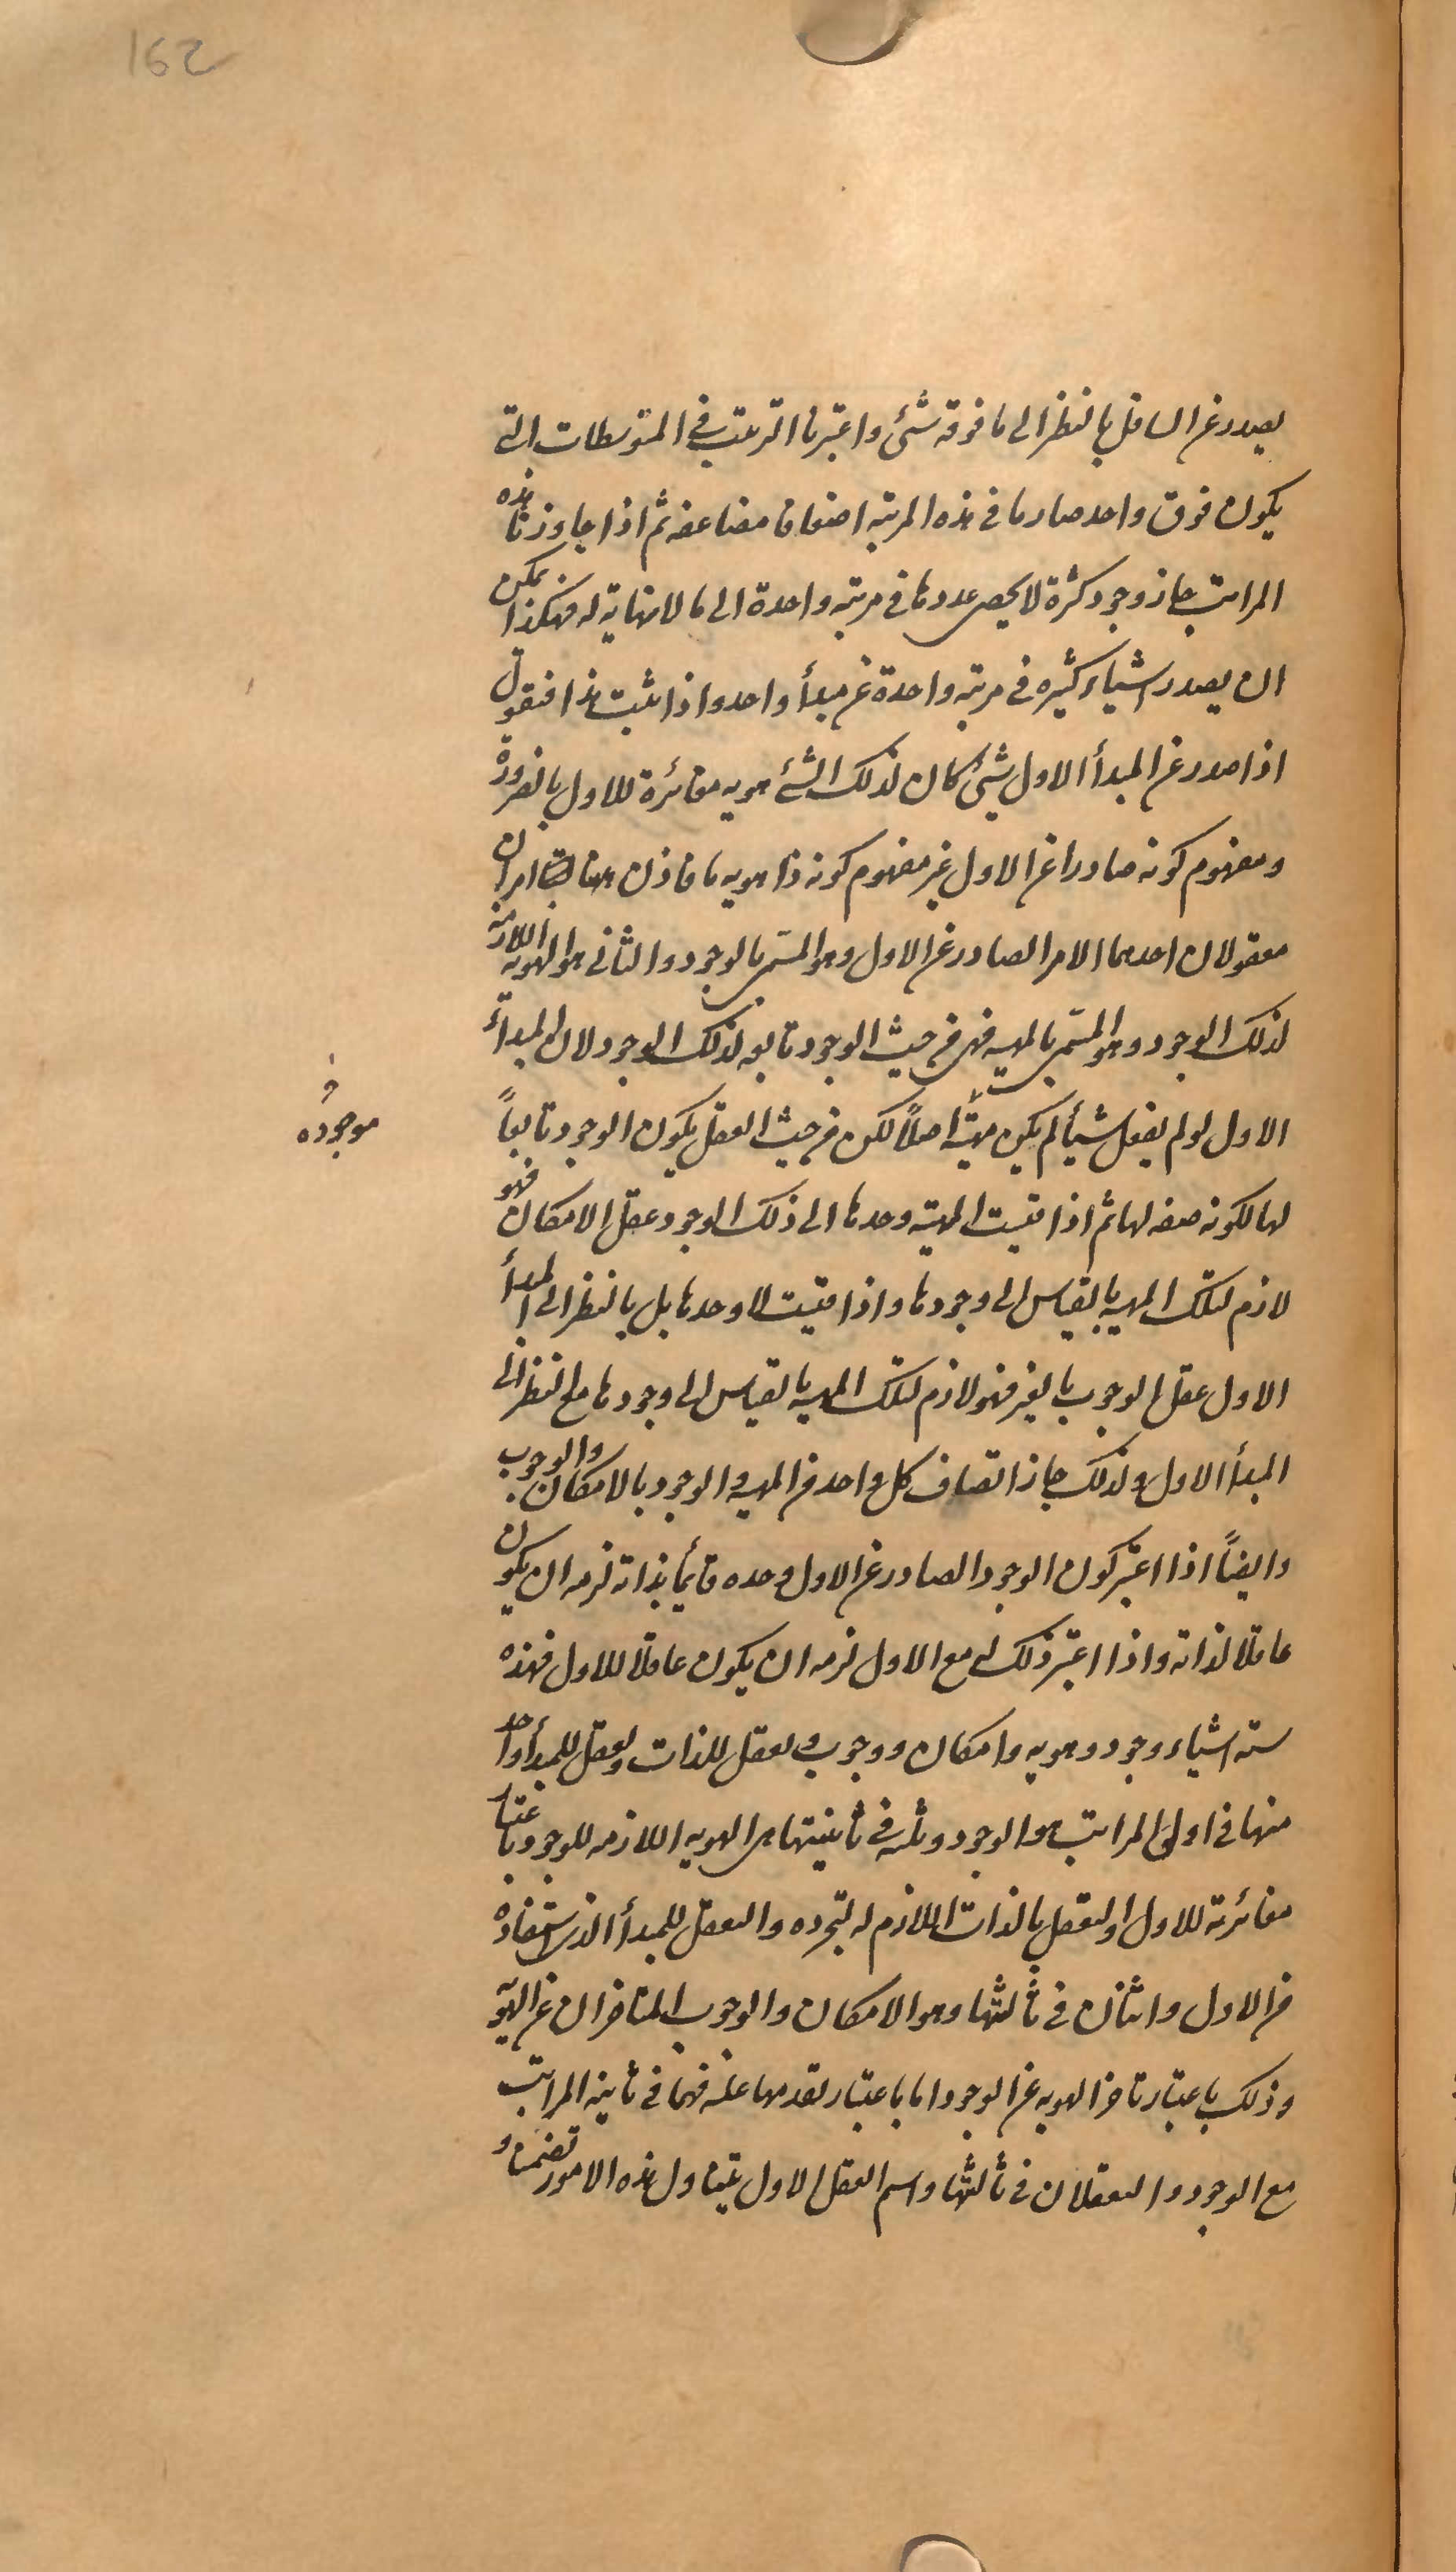 162
يصدر عن السافل بالنظر الى ما فوقه شئ واعتبرنا الترتيب في المتوسطات التي
يكون فوق واحد صار ما في هذه المرتبه اضعافا مضاعفه ثم اذا جاوزنا هذه
المراتب جاز وجود كثرة لا يحصى عددها في مرتبه واحدة الى ما لا نهاية له فهكذا يمكن
ان يصدر اشياء كثيره في مرتبه واحدة عن مبدأ واحد واذا ثبت هذا فنقول
اذا صدر عن المبدأ الاول شئ كان لذلك الشئ هويه مغائرة للاول بالضرورة
ومفهوم كونه صادرا عن الاول غير مفهوم كونه ذا هويه ما فاذن هنا امران
معقولان احدهما الامر الصادر عن الاول وهو المسمى بالوجود والثاني هو الهويه اللازمة
لذلك الوجود وهو المسمى بالمهيه فهى من حيث الوجود تابعه لذلك الوجود لان المبدأ
الاول لو لم يفعل شيأ لم يكن مهيّة اصلاً لكن من حيث العقل يكون الوجود تابعاً
موجوده
لها لكونه صفه لها ثم اذا قيست المهيّه وحدها الى ذلك الوجود عقل الامكان فهو
لازم لتلك المهيه بالقياس الى وجودها واذا قيست لا وحدها بل بالنظر الى المبدأ
الاول عقل الوجوب بالغير فهو لازم لتلك المهيه بالقياس الى وجودها مع النظر الى
المبدأ الاول ولذلك جاز اتصاف كل واحد من المهيه والوجود بالامكان والوجوب
وايضاً اذا اعتبر كون الوجود الصادر عن الاول وحده قائما بذاته لزمه ان يكون
عاقلا لذاته واذا اعتبر ذلك له مع الاول لزمه ان يكون عاقلا للاول فهذه
سته اشياء وجود وهويه وامكان ووجوب وتعقل للذات وتعقل للمبدأ واحد
منها في اولى المراتب هو الوجود وثلثه في ثانيتها هى الهويه اللازمه للوجود باعتبار
مغائرته للاول والتعقل بالذات اللازم له لتجرده والتعقل للمبدأ الذى استفاده
من الاول واثنان في ثالثتها وهو الامكان والوجوب المتاخران عن الهويّه
وذلك باعتبار تاخر الهويه عن الوجود اما باعتبار تقدمها عليه فهما في ثانيه المراتب
مع الوجود والتعقلان في ثالثتها واسم العقل الاول يتناول هذه الامور تضمنا و